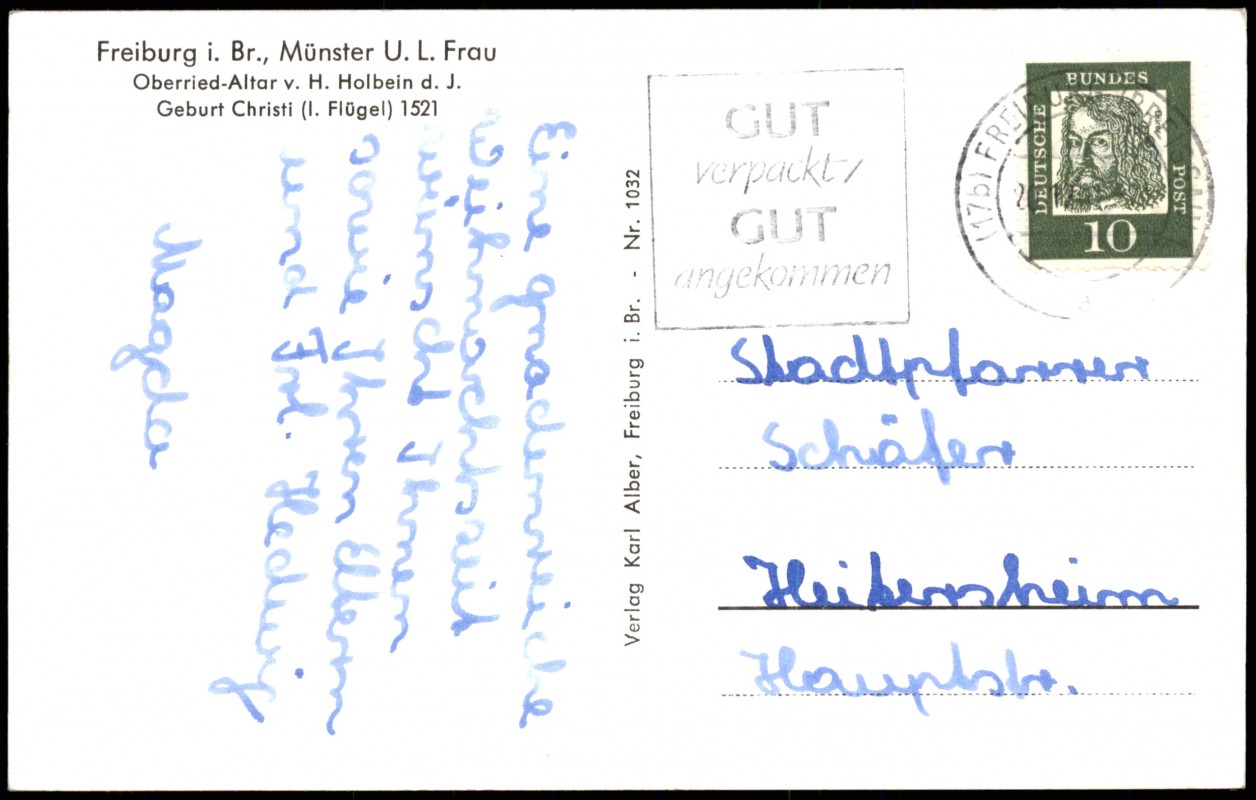 Freiburg i. Br., Münster U. L. Frau
Oberried-Altar v. H. Holbein d. J.
Geburt Christi (l. Flügel) 1521
Eine gnadenreiche
Weihnachtszeit
wünscht Ihnen
sowie Ihren Eltern
und Frl. Hedwig
Magda
Verlag Karl Alber, Freiburg i. Br. - Nr. 1032
GUT
verpackt/
GUT
angekommen
(17b) FREIBURG
DEUTSCHE
BUNDES
POST
Dürer
10
Stadtpfarrer
Schäfer
Heitersheim
Hauptstr.